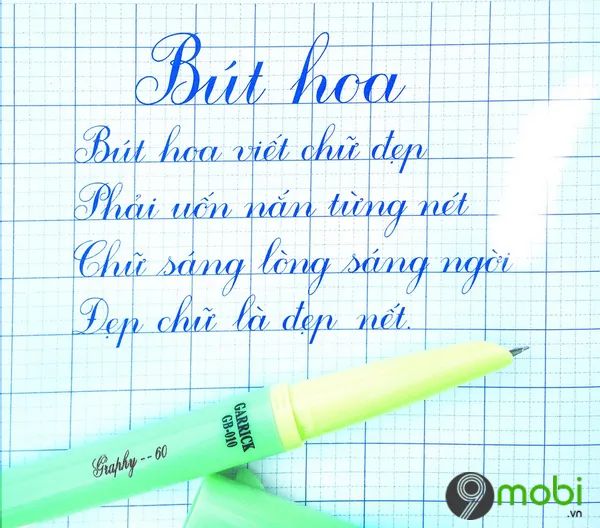 Bút hoa
Bút hoa viết chữ đẹp
Phải uốn nắn từng nét
Chữ sáng lòng sáng ngời
Đẹp chữ là đẹp nết.
GARRICK
GB-010
Graphy -- 60
9mobi
.vn